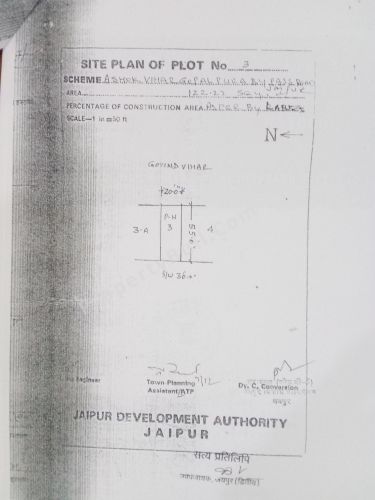 SITE PLAN OF PLOT No. 3
SCHEME ASHOK VIHAR GOPALPURA BY PASS ROAD
JAIPUR
AREA 122.22 SQ.Y
PERCENTAGE OF CONSTRUCTION AREA AS PER BY LAWS
SCALE—1 in = 50 ft
N
GOVIND VIHAR
20'0"
P.N
3-A 3 55' 4
Engineer
Town Planning
Assistant/ATP
Dy. C. Conversion
जयपुर
JAIPUR DEVELOPMENT AUTHORITY
JAIPUR
सत्य प्रतिलिपि